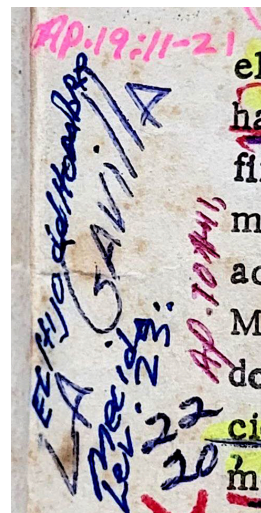 AP.19:11-21
EL Hijo del Hombre
LA GAVILLA
Mecida:
Lev. 23:
22
20,
el
ha
fi
m
ac
M
do
ci
m